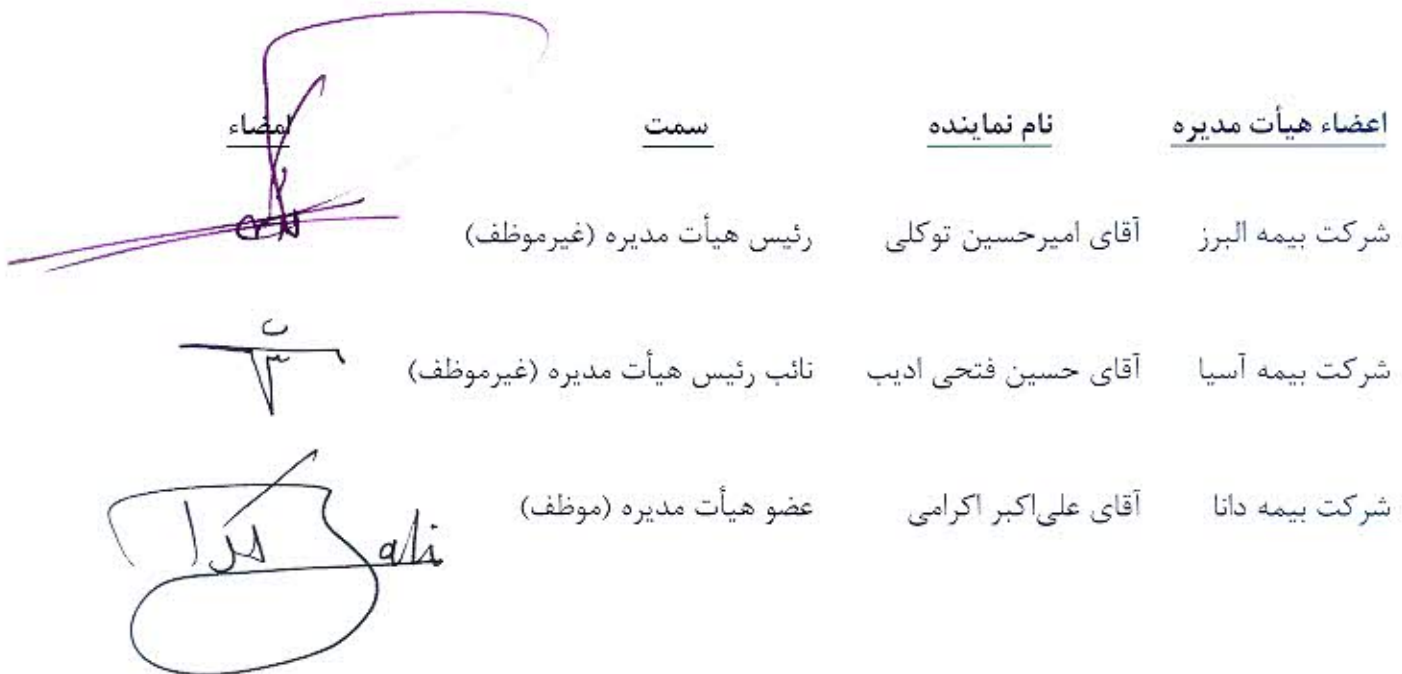 اعضاء هیأت مدیره نام نماینده سمت امضاء
شرکت بیمه البرز آقای امیرحسین توکلی رئیس هیأت مدیره (غیرموظف)
شرکت بیمه آسیا آقای حسین فتحی ادیب نائب رئیس هیأت مدیره (غیرموظف)
شرکت بیمه دانا آقای علی‌اکبر اکرامی عضو هیأت مدیره (موظف)
ali